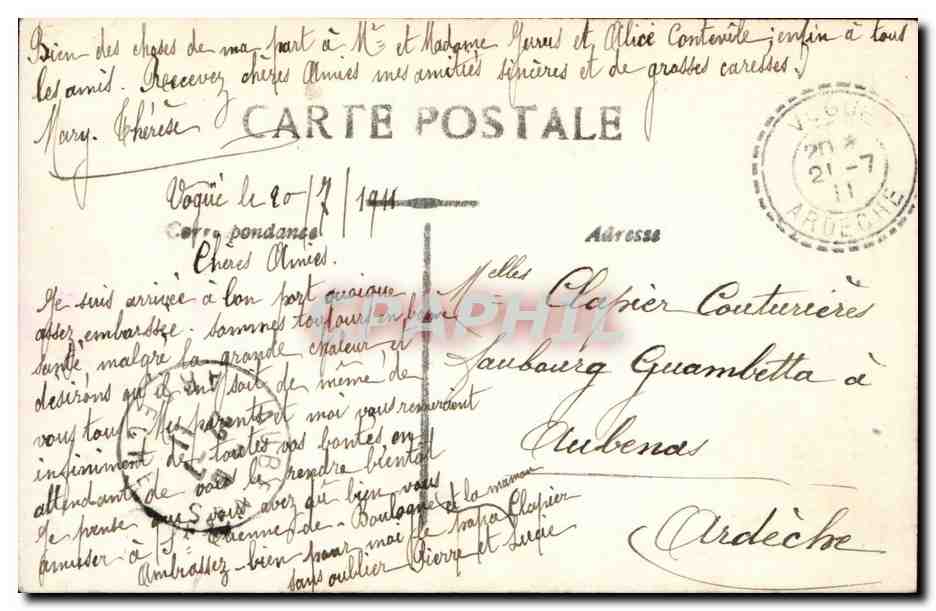 Bien des choses de ma part à Mr et Madame et Alice Contevite, enfin à tous
les amis. Reecevez chères Amies mes amitiés sincères et de grosses caresses
Mary-Thérèse
CARTE POSTALE
VOGUE
20 *
21-7
11
ARDECHE
Vogüé le 20/7/1911
Correspondance
Adresse
Chères Amies.
Je suis arrivée à bon port quoique
assez embarssée. sommes toujours en bonne
santé, malgré la grande chaleur et
desirons qu'il en soit de même de
vous tous. Mes parents et moi vous remercient
infiniment de toutes vos bontés en
attendant de vous le rendre bientôt
Je pense que vous avez du bien vous
amuser à St Etienne-de-Boulogne
Ambrassez-bien pour moi le papa et la maman Clapier
sans oublier Pierre et Lucie
Melles Clapier Couturières
Faubourg Guambetta à
Aubenas
Ardèche
AUBENAS
ARDECHE